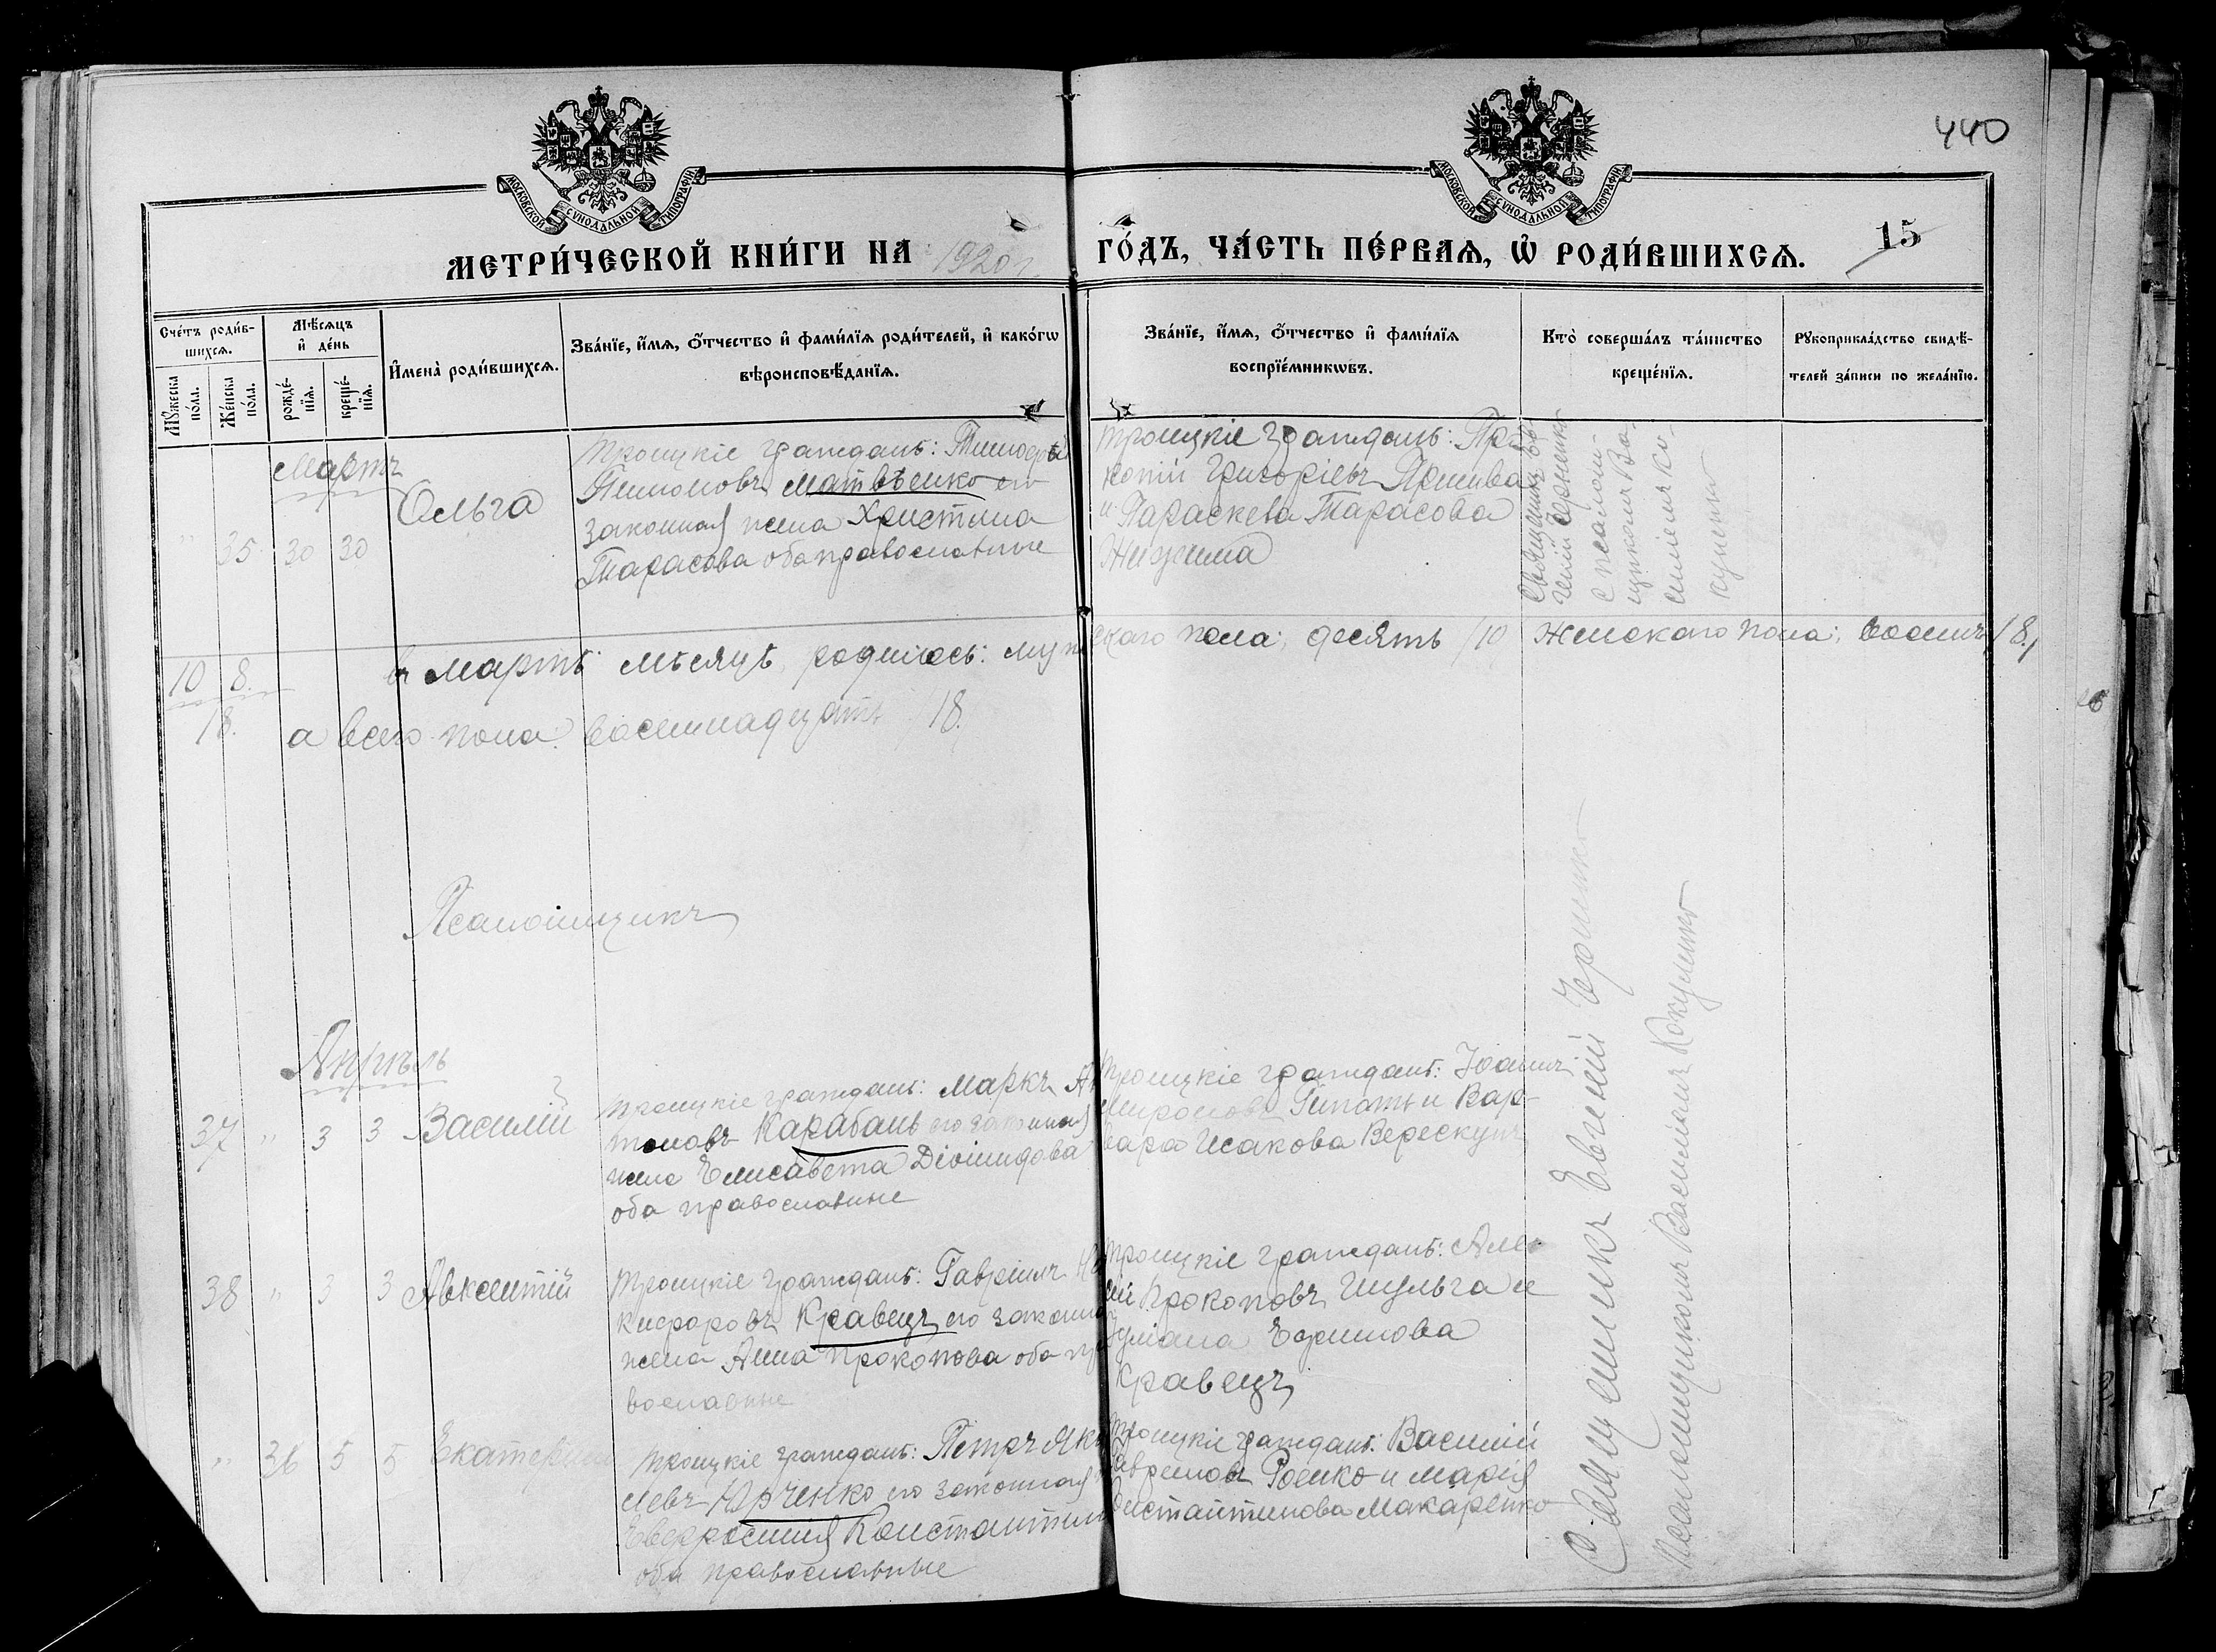 440
МОСКОВСКОЙ СѴНОДАЛЬНОЙ ТИПОГРАФІИ
МОСКОВСКОЙ СѴНОДАЛЬНОЙ ТИПОГРАФІИ
МЕТРИ́ЧЕСКОЙ КНИ́ГИ НА 1920 г. ГО́ДЪ, ЧА́СТЬ ПЕ́РВАѦ, Ѡ҆ РОДИ́ВШИХСѦ. 15
Сче́тъ роди́в-
шихсѧ.
Мꙋ́жеска по́ла.
Же́нска по́ла.
Мѣ́сѧцъ и҆ де́нь
рожде́-нїѧ.
креще́-нїѧ.
И҆мена̀ роди́вшихсѧ.
Зва́нїе, и҆́мѧ, ѻ҆́тчество и҆ фами́лїѧ роди́телей, и҆ како́гѡ
вѣроисповѣ́данїѧ.
Зва́нїе, и҆́мѧ, ѻ҆́тчество и҆ фами́лїѧ
воспрїе́мникѡвъ.
Кто̀ соверша́лъ та́инство
креще́нїѧ.
Рꙋкоприкла́дство свидѣ́-
телей за́писи по жела́нїю.
Мартъ
" 35 30 30 Ольга
Троицкіе граждане: Тимофей
Матвѣенко его
законная жена Христина
Тарасова оба православные
Троицкіе граждане: Про-
копій Григоріевъ
и Параскева Тарасова
Священникъ Евгеній Черненко
с псаломщикомъ Василіемъ Кокуленко
10 8
18
въ Мартѣ мѣсяцѣ родилось: мужескаго пола: десять /10 женскаго пола: восемь /8/
а всего пола восемнадцать 18.
Псаломщикъ
Апрѣль
37 " 3 3 Василій
Троицкіе граждане: Маркъ Ан-
тоновъ Карабанъ его законная
жена Елисавета
оба православные
Троицкіе граждане: Іоаннъ
Мироновъ и Вар-
вара Исакова Верескунъ
38 " 3 3 Авксентій
Троицкіе граждане: Гавріилъ Ни-
кифоровъ Кравецъ его законная
жена Анна Прокопова оба пра-
вославные
Троицкіе граждане: Алек-
сій Прокоповъ Шульга и
Уліана Ефимова
Кравецъ
" 36 5 5 Екатерина
Троицкіе граждане: Петръ Яков-
левъ Юрченко его законная
Евфросинія Константинова
оба православные
Троицкіе граждане: Василій
Гавриловъ Роенко и Марія
Константинова Макаренко
Священникъ Евгеній Черненко
Псаломщикомъ Василіемъ Кокуленко